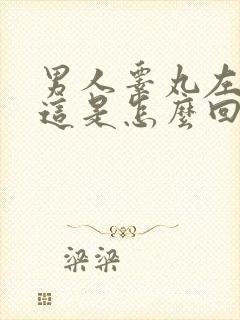 男人睾丸左
這是怎麼回
梁梁